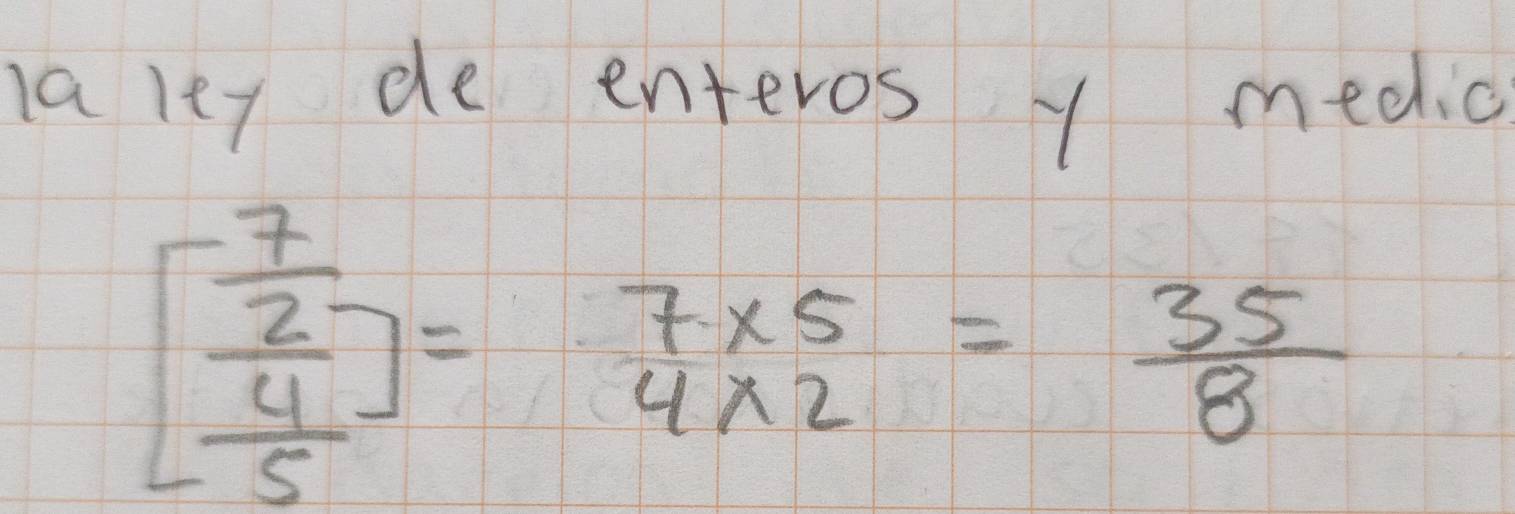 la ley de enteros y medio
7/2/4/5 = 7x5/4x2 = 35/8